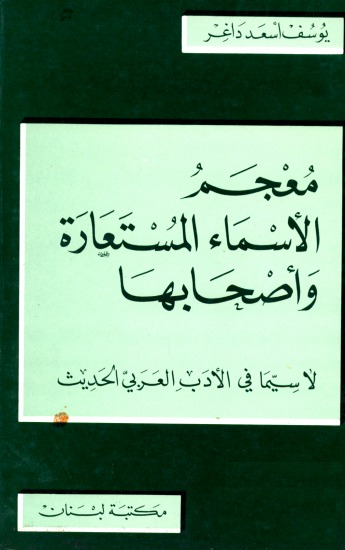 يُوسُف أسعَد دَاغِر
مُعْجَمُ
الأسْمَاء المُسْتَعَارَة
وَأصْحَابهَا
لا سِيَّمَا في الأدَبِ العَرَبيّ الحَديث
مكتبة لبنان